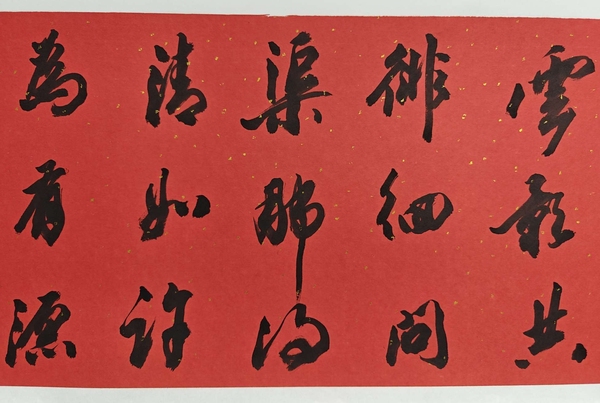 雲影共
徘徊問
渠那得
清如許
為有源